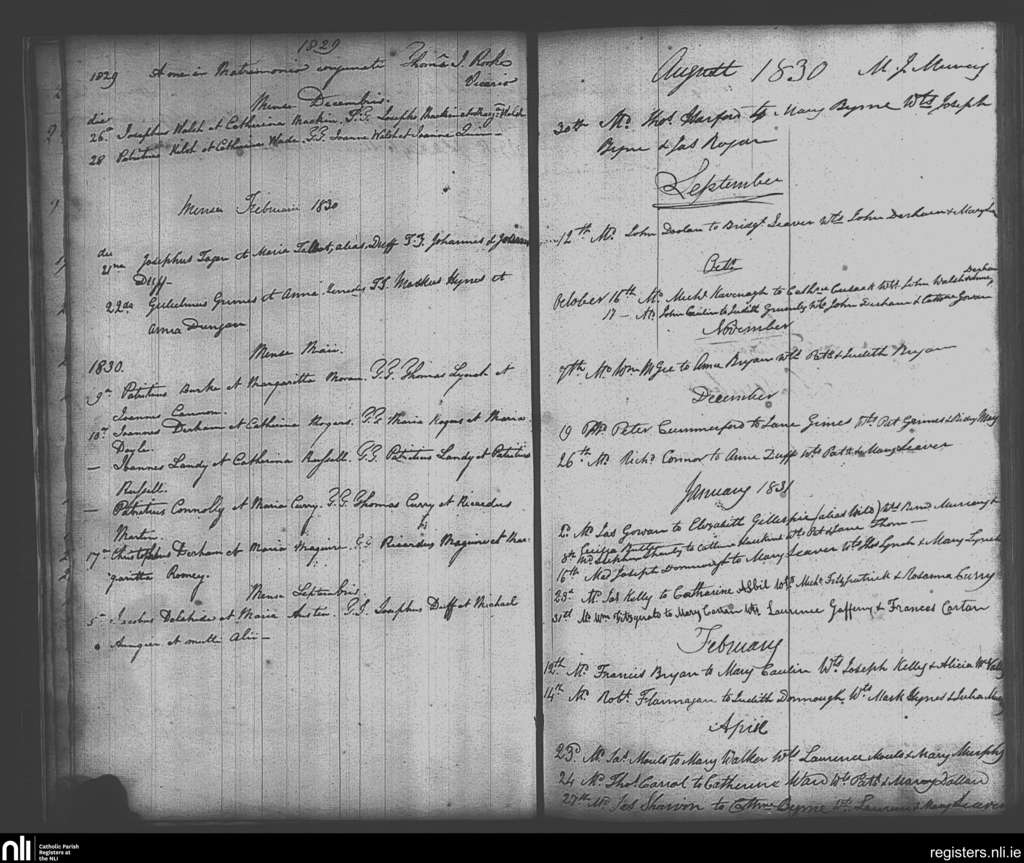 1829
1829 A me in Matrimonio conjuncti Thoms J. Rooke
Vicario
Mense Decembris.
die
26a Josephus Walsh et Catherina Mackin. F.F. Josephs Mackin et Walsh
28 Patritius Kilet et Catherina Wade. F.F. Joanne Walsh et Joanna Quin
Mense Februarii 1830
die
21ma Josephus Fagan et Maria Talbot, alias, Duff F.F. Johannes &
Duff
22da Gulielmus Grimes et Anna Kenedy F.F. Markus Hynes et
Anna Dungan
Mense Maii.
1830.
9a Patritius Burke et Margaritta Moran. F.F. Thomas Lynch et
Joannes Cannon.
10a Joannes Derham et Catherina Rogers. F.F. Maria Rogers et Maria
Doyle.
— Joannes Landy et Catherina Russell. F.F. Patritius Landy et Patritius
Russell.
— Patritius Connolly et Maria Curry. F.F. Thomas Curry et Ricardus
Martin.
17a Christophs Derham et Maria Maguire. F.F. Ricardus Maguire et Mar
garitta Romey.
Mense Septembris
5 Jacobus Delahide et Maria Austin. F.F. Josephus Duff et Michael
Aungier et multi Alii —
August 1830 M. J. Murray
30th Md. Thos. Harford to Mary Byrne Wts Joseph
Byrne & Jas Rogan
September
12th Md. John Doolan to Bridgt. Leaver Wts John Derham & Mary
Octr.
October 16th Md. Michl. Kavenagh to Cathne Cusack Wts John Walsh & Anne Derham
17 — Md. John Caulin to Judith Gormly Wts John Derham & Cathne Gavan
November
7th Md. Wm McGee to Anne Bryan Wts Patk & Judith Bryan
December
19 Md. Peter Cummerford to Jane Gimes Wts Pat Grimes & Bidy
26th Md. Richd. Connor to Anne Duff Wts Patk & Mary Leaver
January 1831
2d Md. Jas Gowan to Elizabeth Gillespie (alias Wild) Wts Bend Murray &
Cecilia Butler
8th Md. Stephen to Cathne Wts Pat & Jane Thom —
16th Md. Joseph Donnough to Mary Leaver Wts Thos Lynch & Mary Lynch
23d Md. Jas Kelly to Catharine Wts Michl. Fitzpatrick & Rosanna Curry
31st Md. Wm Fitzgerald to Mary Carran Wts Laurence Gaffeny & Frances Cartan
February
12th Md. Francis Bryan to Mary Caulin Wts Joseph Kelly & Alicia
14th Md. Robt. Flannagan to Judith Donnough Wts Mark Hynes & Julia
April
23d Md. Jas. Mouls to Mary Walker Wts Laurence Mouls & Mary Murphy
24 Md. Thos. Carrol to Catherine Ward Wts Patk & Mary Dollard
27th Md. Jas Shawon to Cathne Byrne Wts Laurence & Mary Leaver
nli Catholic Parish
Registers at
the NLI
registers.nli.ie